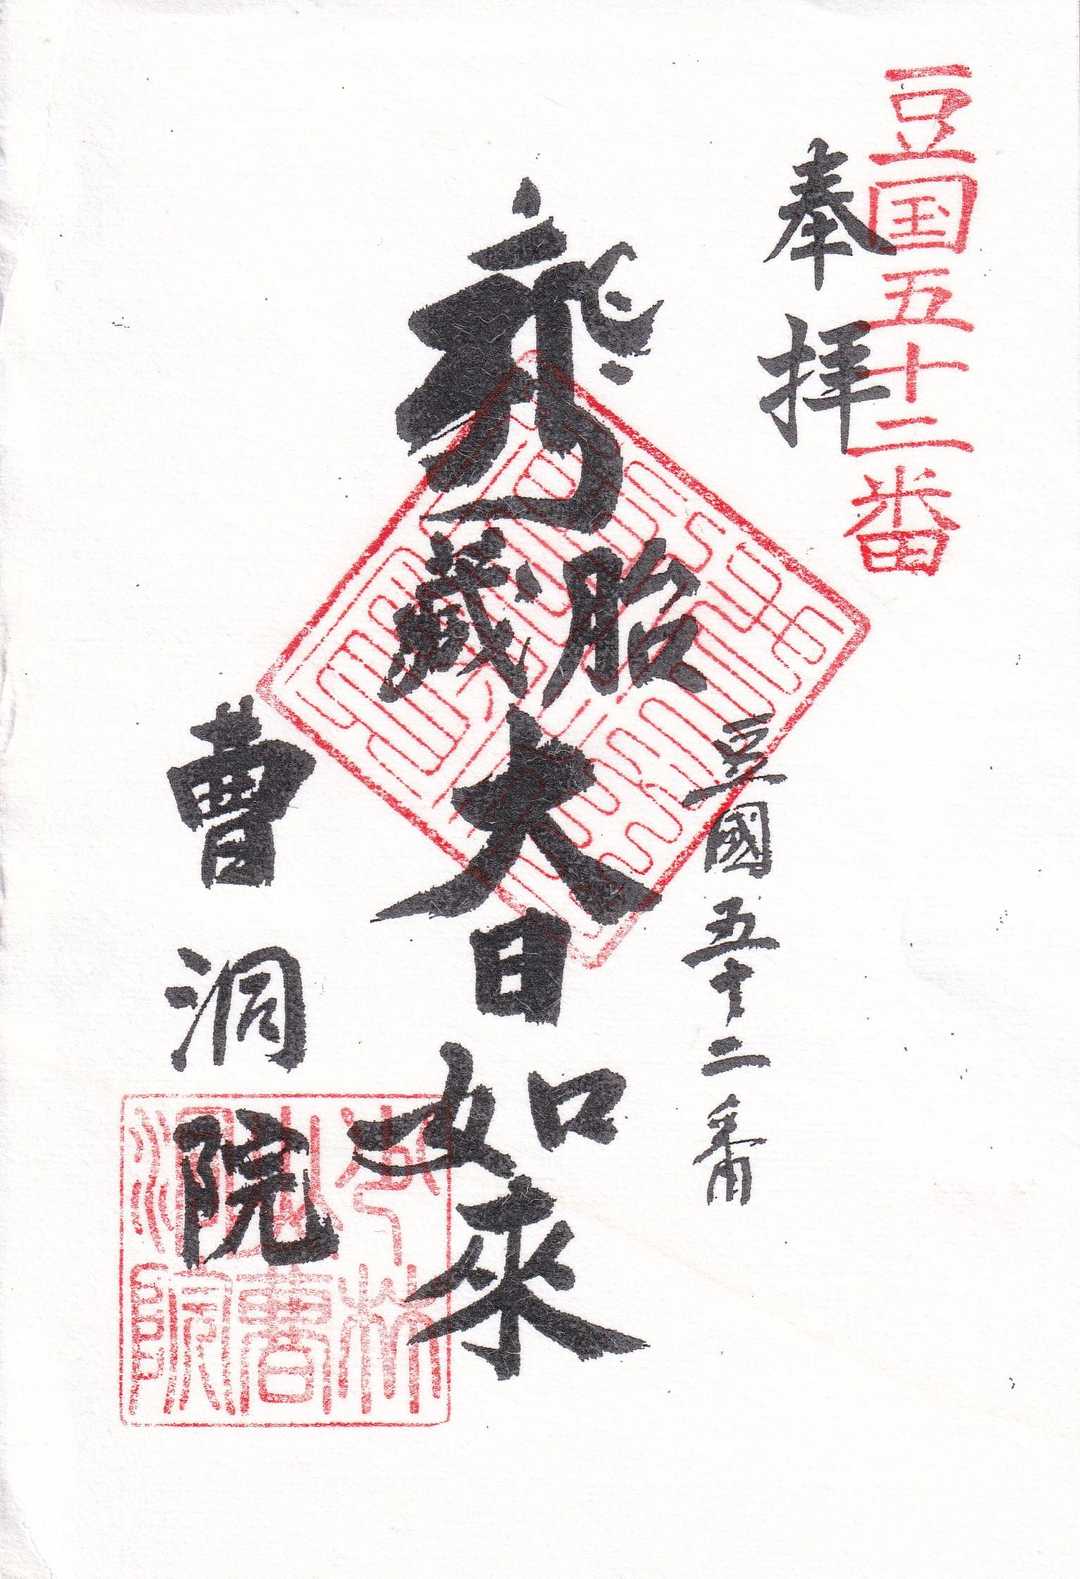 豆国五十二番
奉拝
豆國五十二番
胎藏大日如來
曹洞院